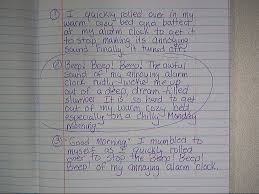 ① I quickly rolled over in my
warm cozy bed and batted
at my alarm clock to get it
to stop making its annoying
sound. Finally it turned off!
② Beep! Beep! Beep! The awful
sound of my annoying alarm
clock rudly woke me up
out of a deep, dream filled
slumber. It is so hard to get
out of my warm cozy bed
especially on a chilly Monday
morning.
③ "Good morning" I mumbled to
myself as I quickly rolled
over to stop the Beep! Beep!
Beep! of my annoying alarm clock.